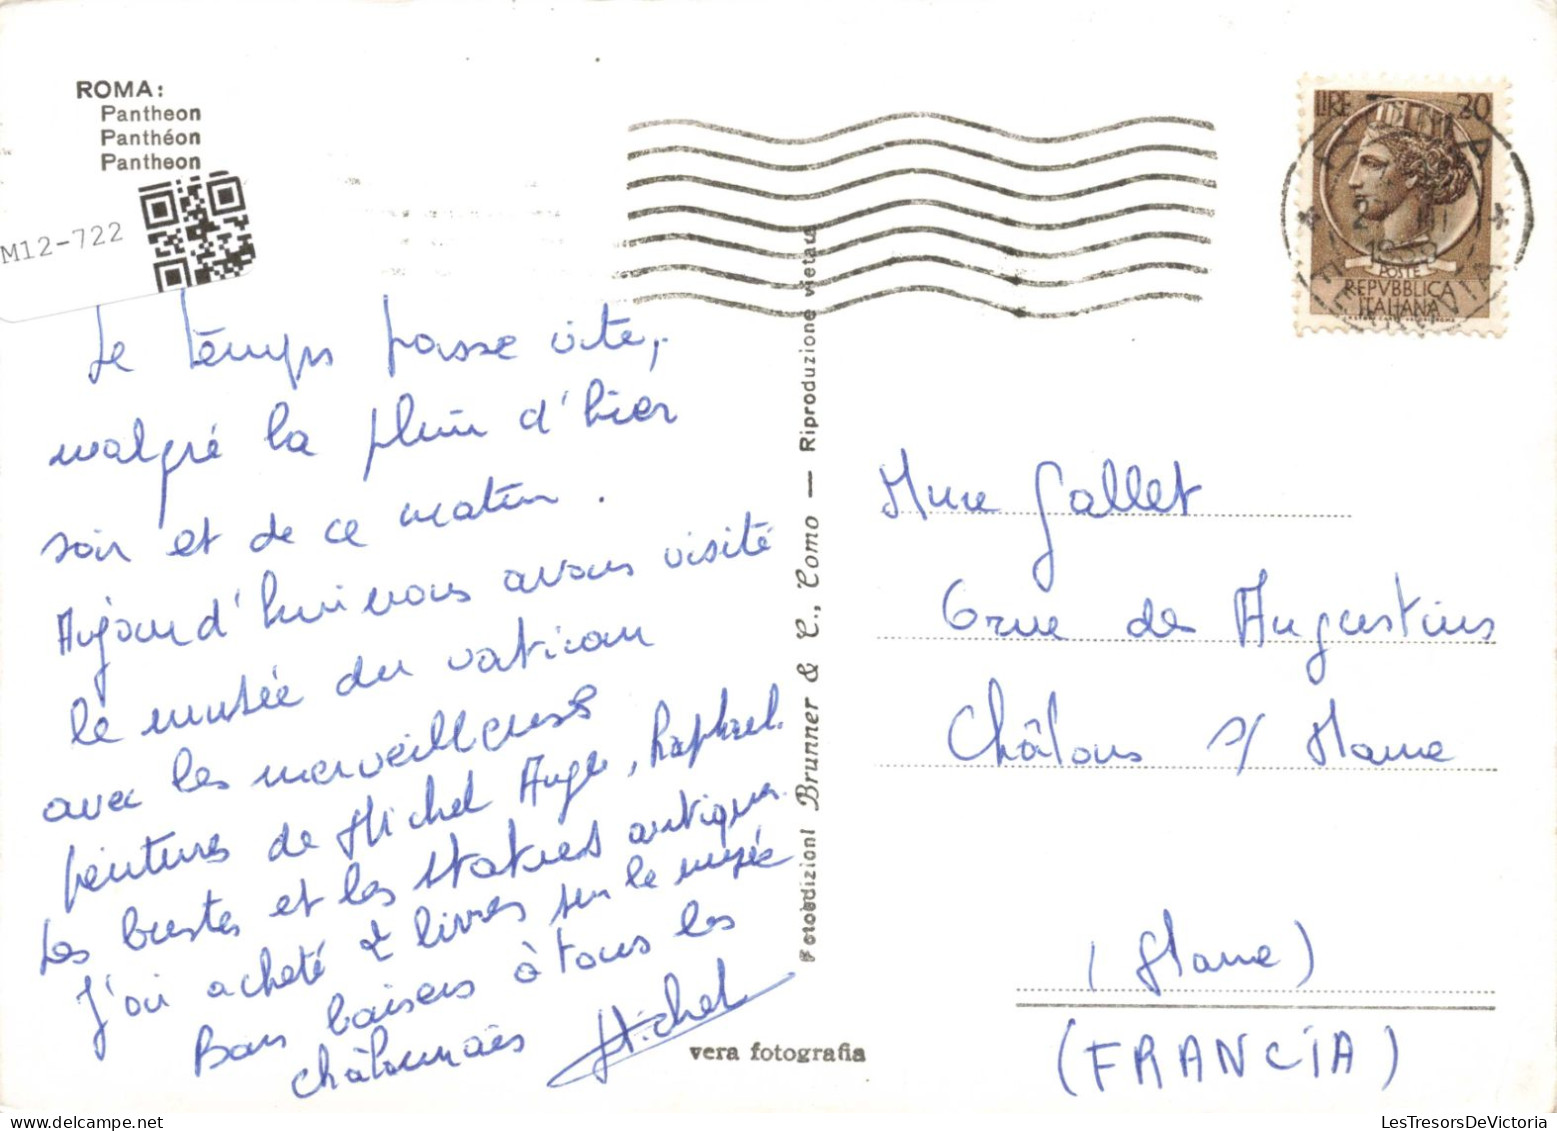 ROMA:
Pantheon
Panthéon
Pantheon
M12-722
Le temps passe vite,
malgré la pluie d'hier
soir et de ce matin.
Aujourd'hui nous avons visité
le musée du vatican
avec les merveilleuses
peintures de Michel Ange, Raphael.
Les bustes et les statues antiques.
J'ai acheté 2 livres sur le musée
Bons baisers à tous les
châlonnais Michel
Fotoedizioni Brunner & C., Como — Riproduzione vietata
vera fotografia
LIRE 20
POSTE
REPVBBLICA
ITALIANA
Mme Gallet
6 rue des Augustins
Châlons s/ Marne
(Marne)
(FRANCIA)
LesTresorsDeVictoria.com